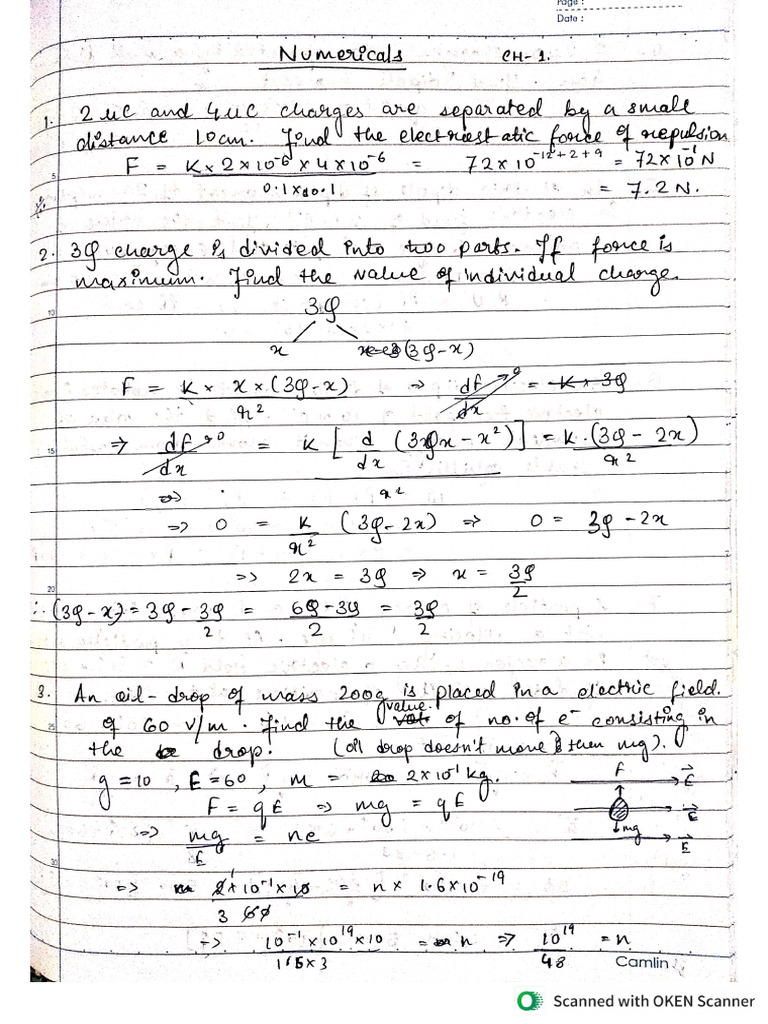 Page :
Date :
Numericals CH-1.
1. 2 μC and 4 μC charges are separated by a small
distance 10cm. Find the electrostatic force of repulsion
F = K × 2×10⁻⁶ × 4×10⁻⁶ / 0.1×0.1 = 72×10⁻¹²⁺²⁺⁹ = 72×10⁻¹N
= 7.2 N.
2. 3Q charge is divided into two parts. If force is
maximum. Find the value of individual charge.
3Q
x (3Q-x)
F = K × x × (3Q-x) / r² ⇒ df/dx = K × 3Q
⇒ df/dx = K [d/dx (3Qx - x²)] / r² = K.(3Q - 2x) / r²
⇒ 0 = K/r² (3Q-2x) ⇒ 0 = 3Q - 2x
⇒ 2x = 3Q ⇒ x = 3Q/2
∴ (3Q-x) = 3Q - 3Q/2 = 6Q-3Q/2 = 3Q/2
3. An oil-drop of mass 200g is placed in a electric field.
of 60 V/m. Find the value of no. of e⁻ consisting in
the drop. (oil drop doesn't move then mg).
g = 10, E = 60, m = 2×10⁻¹ kg.
F = qE ⇒ mg = qE
F E
E
mg E
⇒ mg/E = ne
⇒ 2×10⁻¹×10 / 3 60 = n × 1.6×10⁻¹⁹
⇒ 10⁻¹×10¹⁹×10 / 1.6×3 = n ⇒ 10¹⁹/48 = n
Camlin
Scanned with OKEN Scanner